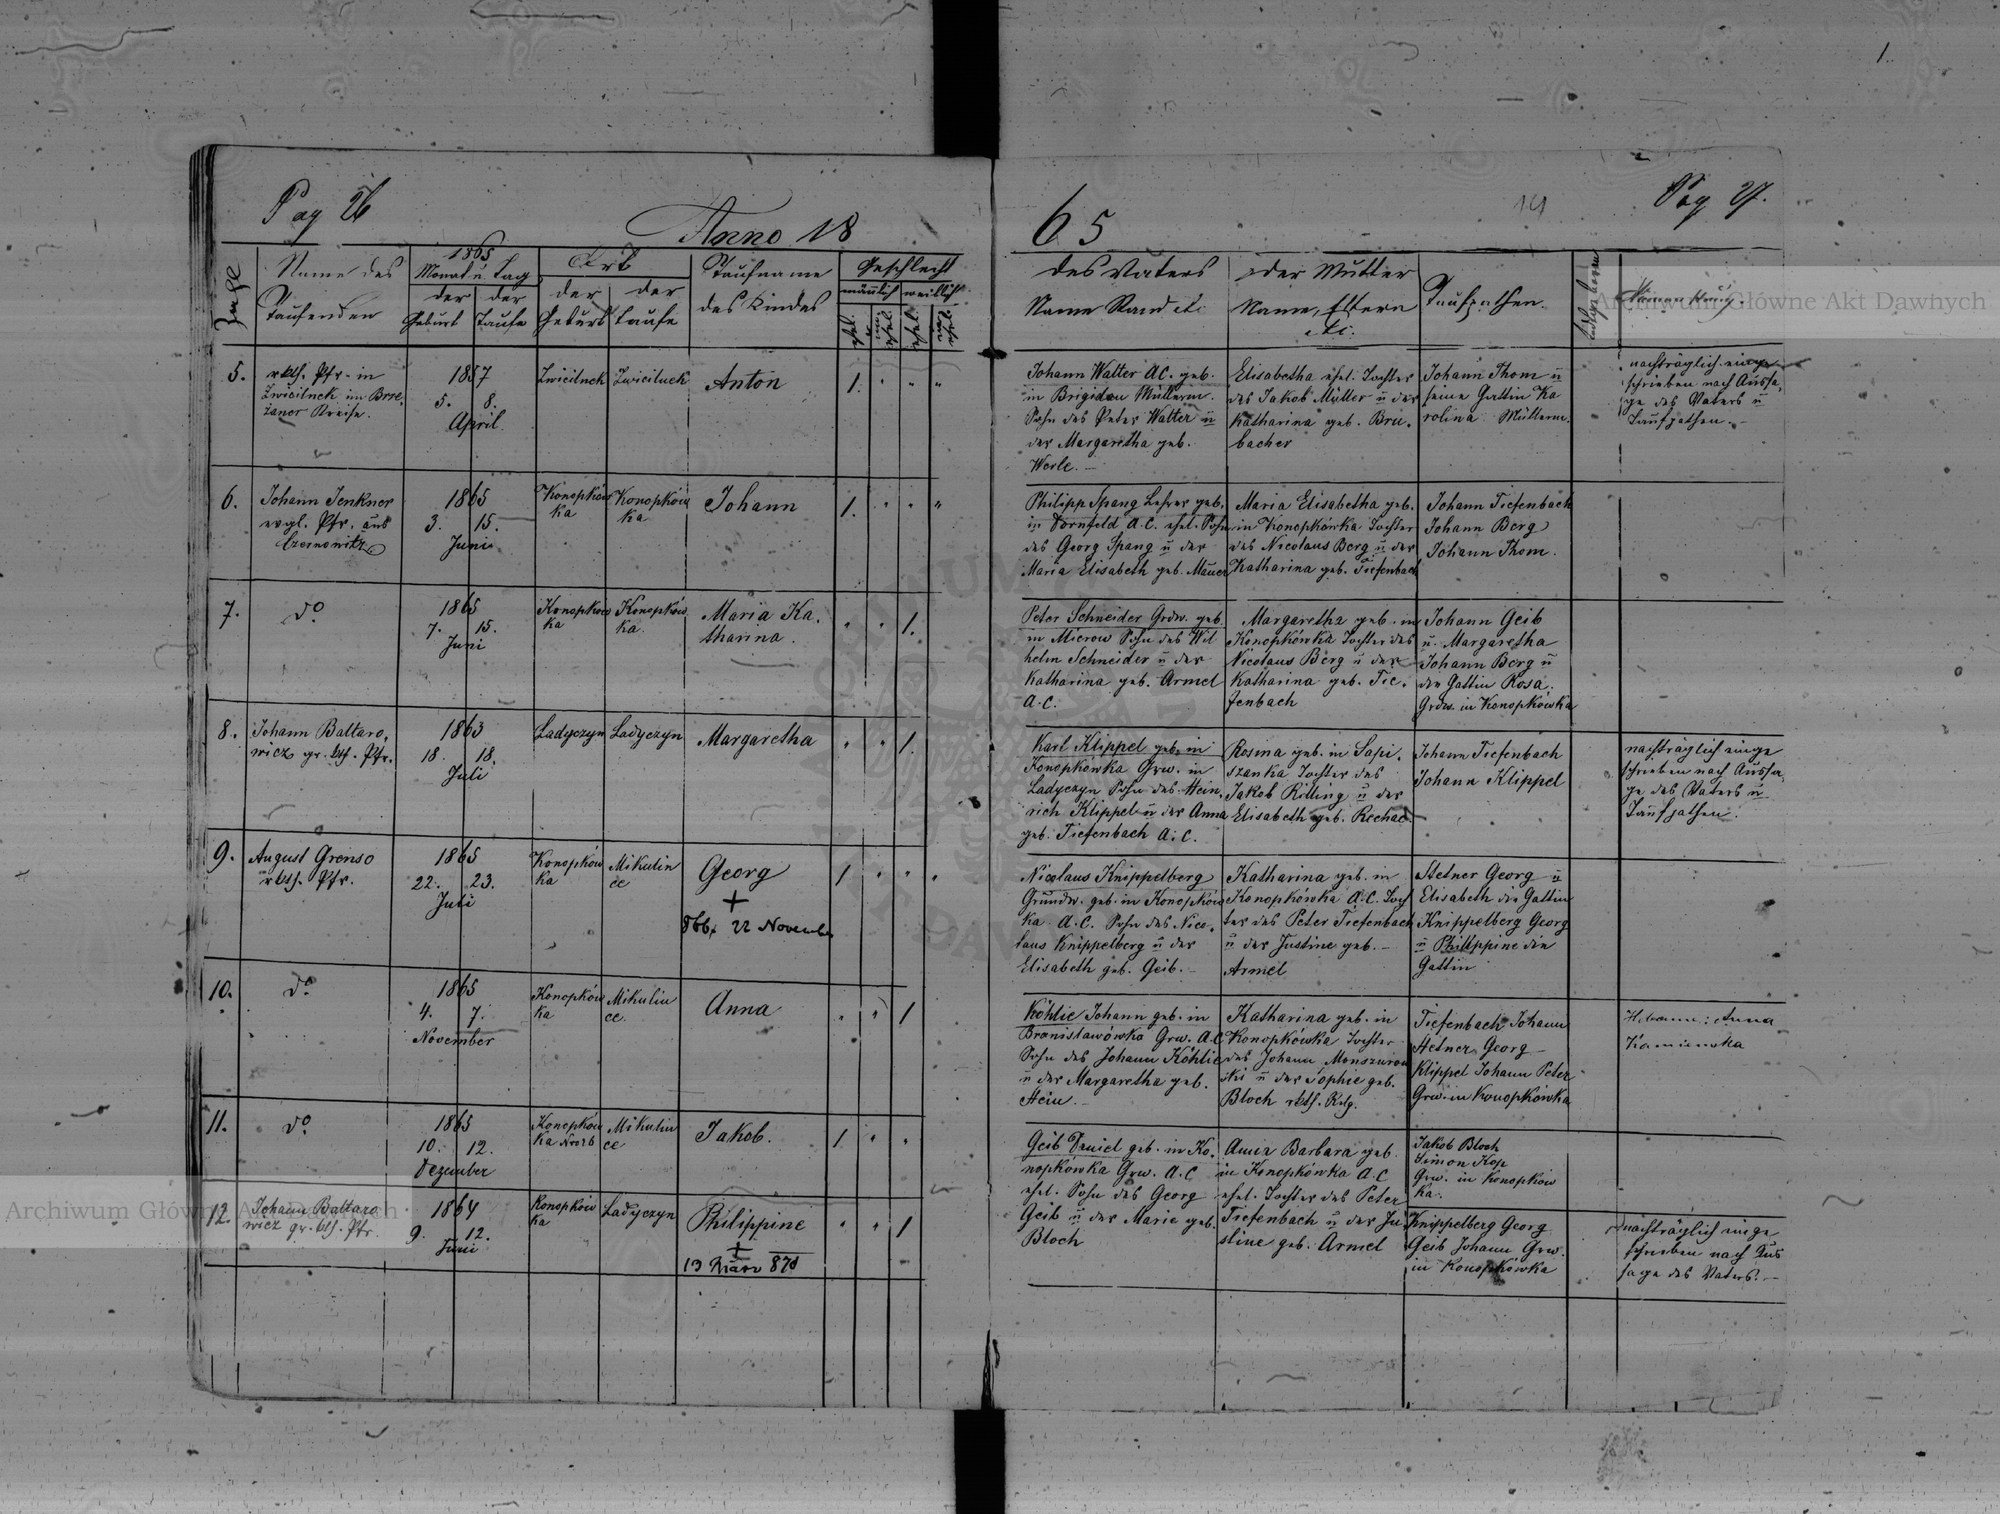 1.
Pag 26
Anno 18
65
Pag 27.
Zahl
Name des
Taufenden
1865
Monat u. Tag
der
Geburt
der
Taufe
Ort
der
Geburt
der
Taufe
Taufname
des Kindes
Geschlecht
männlich
weiblich
ehel.
unehel.
ehel.
unehel.
des Vaters
Name Stand etc.
der Mutter
Name, Eltern
etc.
Taufpathen.
Anmerkung.
Archiwum Główne Akt Dawnych
5.
rkth. Pfr. in
Zwicilnek im Brze
zaner Kreise.
1857
5. 8.
April
Zwicilnek
Zwicilnek
Anton
1. " " "
Johann Walter A.C. geb.
in Brigidau Müllerm.
Sohn des Peter Walter u
der Margaretha geb.
Werle. —
Elisabetha ehel. Tochter
des Jakob Müller u der
Katharina geb. Bru.
bacher
Johann Thom u
seine Gattin Ka
rolina Müllerm.
nachträglich einge
schrieben nach Aussa,
ge des Vaters u
Taufpathen. —
6.
Johann Jenkner
evgl. Pfr. aus
Czernowitz
1865
3. 15.
Juni
Konopków
ka
Konopków
ka
Johann
1. " " "
Philipp Spang Lehrer geb.
in Dornfeld A.C. ehel. Sohn
des Georg Spang u der
Maria Elisabeth geb. Mauer
Maria Elisabetha geb.
in Konopkówka Tochter
des Nicolaus Berg u der
Katharina geb. Tiefenbach
Johann Tiefenbach
Johann Berg
Johann Thom.
7.
do
1865
7. 15.
Juni
Konopków
ka
Konopków
ka.
Maria Ka.
tharina.
" " 1.
Peter Schneider Grdw. geb
in Mierow Sohn des Wil
helm Schneider u der
Katharina geb. Armel
A.C.
Margaretha geb. in
Konopkówka Tochter des
Nicolaus Berg u der
Katharina geb. Tie.
fenbach
Johann Geib
u. Margaretha
Johann Berg u
die Gattin Rosa,
Grdw. in Konopkówka
8.
Johann Baltaro,
wicz gr. kth. Pfr.
1863
18. 18.
Juli
Ladyczyn
Ladyczyn
Margaretha
" " 1.
Karl Klippel geb. in
Konopkówka Grw. in
Ladyczyn Sohn des Hein,
rich Klippel u der Anna
geb. Tiefenbach A.C.
Rosina geb. in Sapi.
szanka Tochter des
Jakob Rilling u der
Elisabeth geb. Rechac.
Johann Tiefenbach
Johann Klippel
nachträglich einge
schrieben nach Aussa,
ge des Vaters u
Taufpathen.
9.
August Grenso
rkth. Pfr.
1865
22. 23.
Juli
Konopków
ka
Mikulin
ce
Georg
+
866. 22 November
1 " " "
Nicolaus Knippelberg
Grundw. geb. in Konopków
ka A.C. Sohn des Nico,
laus Knippelberg u der
Elisabeth geb. Geib. —
Katharina geb. in
Konopkówka A.C. Toch
ter des Peter Tiefenbach
u der Justine geb. —
Armel
Stetner Georg u
Elisabeth die Gattin
Knippelberg Georg
u Philippine die
Gattin
10.
do
1865
4. 7.
November
Konopków
ka
Mikulin
ce.
Anna
" " 1
Köhlie Johann geb. in
Bronislawówka Grw. A.C
Sohn des Johann Köhlie
u der Margaretha geb.
Hein. —
Katharina geb. in
Konopkówka Tochter
des Johann Monszurow
ski u der Sophie geb.
Bloch rkth. Relg.
Tiefenbach Johann
Stetner Georg
Klippel Johann Peter
Grw. in Konopkówka
Hebamme: Anna
Kamienska
11.
do
1865
10. 12.
Dezember
Konopków
ka
Mikulin
ce
Jakob.
1 " "
Geib Daniel geb. in Ko,
nopkówka Grw. A.C
ehel. Sohn des Georg
Geib u der Marie geb.
Bloch
Anna Barbara geb.
in Konopkówka A.C
ehel. Tochter des Peter
Tiefenbach u der Ju
stine geb. Armel
Jakob Bloch
Simon Kop
Grw. in Konopków
ka.
12.
Johann Baltaro
wicz gr. kth. Pfr.
1864
9. 12.
Juni
Konopków
ka
Ladyczyn
Philippine
+
13 März 870
" " 1
Knippelberg Georg
Geib Johann Grw.
in Konopkówka
nachträglich einge
schrieben nach Aus
sage des Vaters. —
Archiwum Główne Akt Dawnych